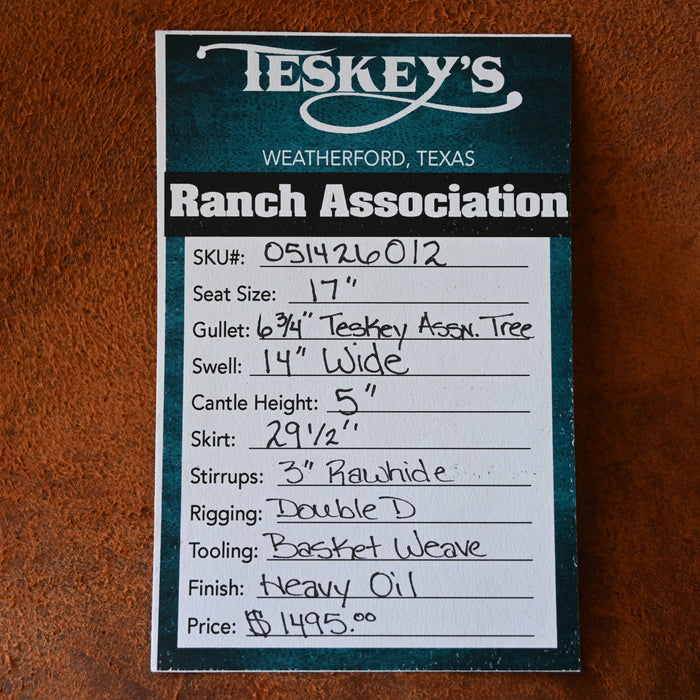 TESKEY'S
WEATHERFORD, TEXAS
Ranch Association
SKU#: 051426012
Seat Size: 17"
Gullet: 6 3/4" Teskey Assn. Tree
Swell: 14" Wide
Cantle Height: 5"
Skirt: 29 1/2"
Stirrups: 3" Rawhide
Rigging: Double D
Tooling: Basket Weave
Finish: Heavy Oil
Price: $1495.00